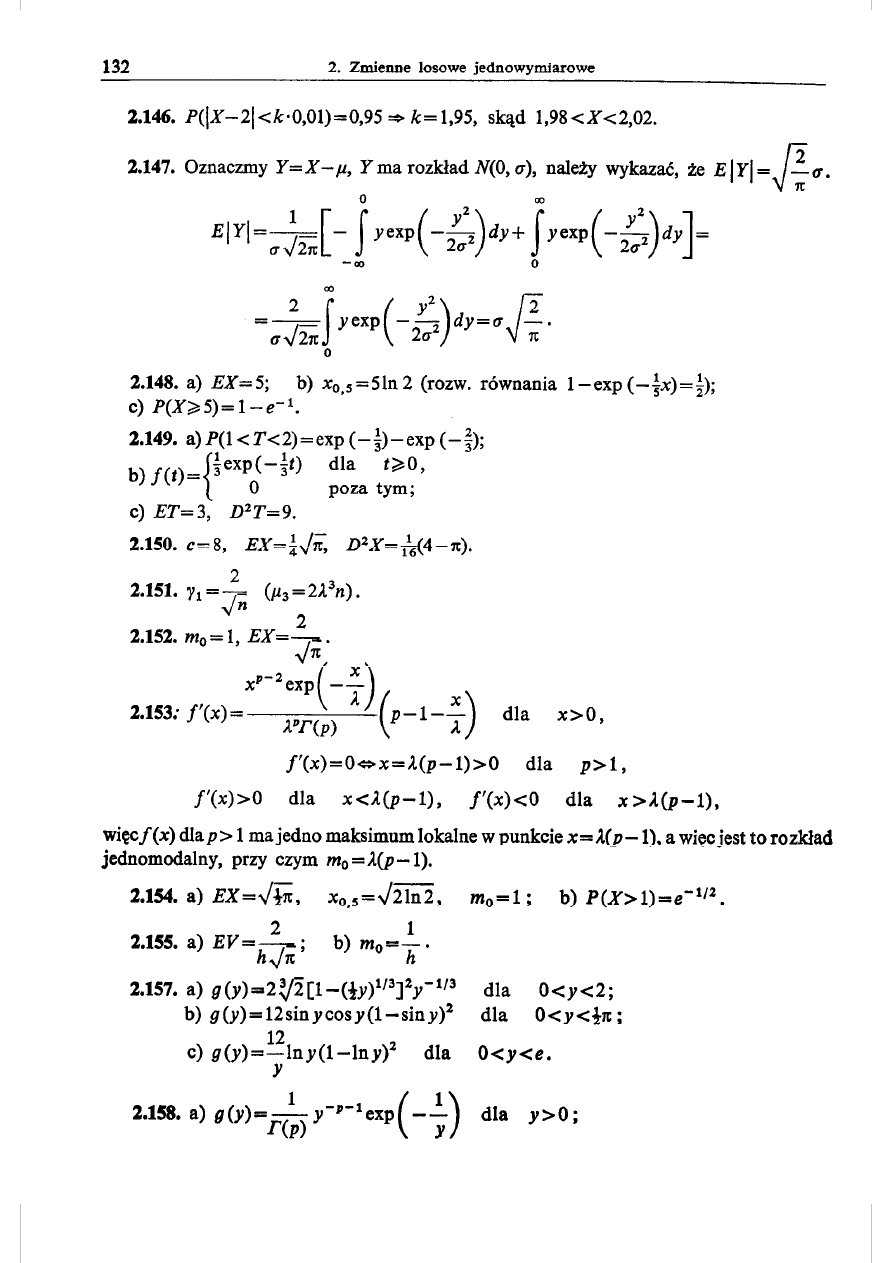 132 2. Zmienne losowe jednowymiarowe
2.146. P(|X−2|<k·0,01)=0,95 ⇒ k=1,95, skąd 1,98<X<2,02.
2.147. Oznaczmy Y=X−μ, Y ma rozkład N(0, σ), należy wykazać, że E|Y|=√(2/π) σ.
E|Y|=1/(σ√2π)[−∫_{−∞}^{0} y exp(−y²/2σ²)dy+∫_{0}^{∞} y exp(−y²/2σ²)dy]=
=2/(σ√2π)∫_{0}^{∞} y exp(−y²/2σ²)dy=σ√(2/π).
2.148. a) EX=5; b) x₀,₅=5ln 2 (rozw. równania 1−exp(−⅕x)=½);
c) P(X≥5)=1−e⁻¹.
2.149. a) P(1<T<2)=exp(−⅓)−exp(−⅔);
b) f(t)={⅓exp(−⅓t) dla t≥0,
0 poza tym;
c) ET=3, D²T=9.
2.150. c=8, EX=¼√π, D²X=1/16(4−π).
2.151. γ₁=2/√n (μ₃=2λ³n).
2.152. m₀=1, EX=2/√π.
2.153: f′(x)=x^{p−2}exp(−x/λ)/(λ^pΓ(p)) (p−1−x/λ) dla x>0,
f′(x)=0⇔x=λ(p−1)>0 dla p>1,
f′(x)>0 dla x<λ(p−1), f′(x)<0 dla x>λ(p−1),
więc f(x) dla p>1 ma jedno maksimum lokalne w punkcie x=λ(p−1), a więc jest to rozkład
jednomodalny, przy czym m₀=λ(p−1).
2.154. a) EX=√(½π), x₀,₅=√(2ln2), m₀=1; b) P(X>1)=e^{−1/2}.
2.155. a) EV=2/(h√π); b) m₀=1/h.
2.157. a) g(y)=2∛2[1−(½y)^{1/3}]²y^{−1/3} dla 0<y<2;
b) g(y)=12sin y cos y(1−sin y)² dla 0<y<½π;
c) g(y)=12/y ln y(1−ln y)² dla 0<y<e.
2.158. a) g(y)=1/Γ(p) y^{−p−1}exp(−1/y) dla y>0;